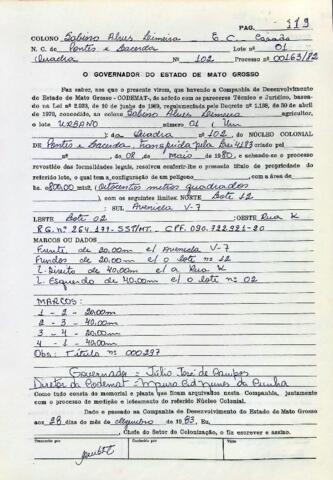 PAG. 113
COLONO Sabino Alves Limeira E. C. - Casado
N. C. de Pontes e Lacerda Lote nº 01
Quadra Nº 102 Processo nº 00163/82
O GOVERNADOR DO ESTADO DE MATO GROSSO
Faz saber, aos que o presente virem, que havendo a Companhia de Desenvolvimento
do Estado de Mato Grosso - CODEMAT-, de acordo com os pareceres Técnico e Jurídico, basea-
da na Lei nº 2.933, de 10 de junho de 1969, regulamentada pelo Decreto nº 1.198, de 30 de abril
de 1970, concedido, ao colono Sabino Alves Limeira agricultor,
o lote URBANO número 01 (Um
); da Quadra nº 102, do NÚCLEO COLONIAL
DE Pontes e Lacerda, transferida pela Lei 4193 criado
nº de 08 de maio 1980, e achando-se o processo
revestido das formalidades legais, resolveu conferir-lhe o presente título de propriedade do
referido lote, o qual tem a configuração de um polígono com a área de
ha. 800.00 mts² (oitocentos metros quadrados
), com os seguintes limites: NORTE Lote 12
SUL Avenida V-7
LESTE Lote 02 ; OESTE Rua K
MARCOS OU DADOS
Frente de 20.00m c/ Avenida V-7
Fundos de 20.00m c/ o lote nº 12
L. Direito de 40.00m c/ a Rua K
L. Esquerdo de 40.00m c/ o lote nº 02
MARCOS:
1 - 2 - 20.00m
2 - 3 - 40.00m
3 - 4 - 20.00m
4 - 1 - 40.00m
Obs: Título nº 000297
Governador = Júlio José de Campos
Diretor da Codemat = Mauro Cid Nunes da Cunha
Como tudo consta do memorial e planta que ficaram arquivados nesta Companhia, juntamente
com o processo de medição e loteamento do referido Núcleo Colonial.
Dado e passado na Companhia de Desenvolvimento do Estado de Mato Grosso
aos 28 dias do mês de dezembro de 1983, Eu,
, Chefe do Setor de Colonização, o fiz escrever e assino.
Transcrito por
Conferido por
Visto